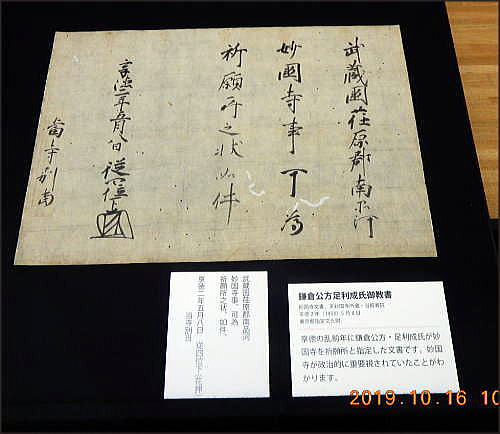 武蔵國荏原郡南品河
妙國寺事可為
祈願所之状如件
享徳二年五月八日 従四位下
當寺別當
武蔵国荏原郡南品河
妙国寺事、可為
祈願所之状、如件、
享徳二年五月八日 従四位下(花押)
当寺別当
鎌倉公方足利成氏御教書
妙国寺文書、天妙国寺所蔵・当館寄託
享徳2年（1453）5月8日
東京都指定文化財
享徳の乱前年に鎌倉公方・足利成氏が妙
国寺を祈願所と指定した文書です。妙国
寺が政治的に重要視されていたことがわ
かります。
2019.10.16 10